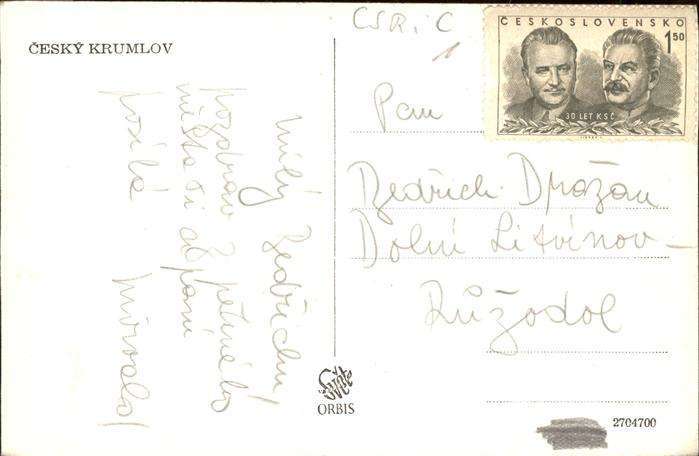 ČESKÝ KRUMLOV
ČSR. C
1
ČESKOSLOVENSKO
1 50
30 LET KSČ
Milý Bedřichu,
pozdrav z pěkného
města si
posílá Miroslav
Pan
Bedřich Dražan
Dolní Litvínov -
Růžodol
Svět
ORBIS
2704700